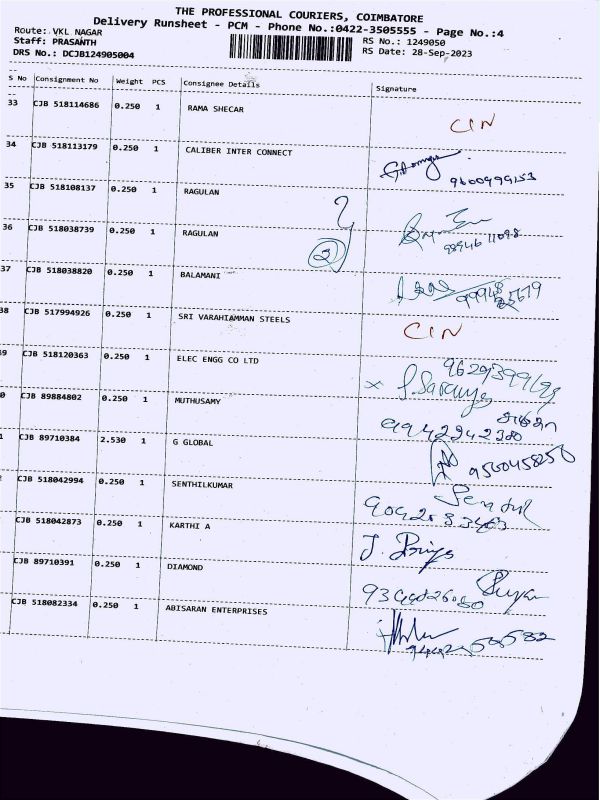 THE PROFESSIONAL COURIERS, COIMBATORE
Delivery Runsheet - PCM - Phone No.:0422-3505555 - Page No.:4
Route: VKL NAGAR
RS No.: 1249050
Staff: PRASANTH
RS Date: 28-Sep-2023
DRS No.: DCJB124905004
S No Consignment No Weight PCS Consignee Details Signature
33 CJB 518114686 0.250 1 RAMA SHECAR CIN
34 CJB 518113179 0.250 1 CALIBER INTER CONNECT 9600499153
35 CJB 518108137 0.250 1 RAGULAN
36 CJB 518038739 0.250 1 RAGULAN 2
37 CJB 518038820 0.250 1 BALAMANI
38 CJB 517994926 0.250 1 SRI VARAHIAMMAN STEELS CIN
39 CJB 518120363 0.250 1 ELEC ENGG CO LTD
0 CJB 89884802 0.250 1 MUTHUSAMY
1 CJB 89710384 2.530 1 G GLOBAL
CJB 518042994 0.250 1 SENTHILKUMAR
CJB 518042873 0.250 1 KARTHI A
CJB 89710391 0.250 1 DIAMOND
CJB 518082334 0.250 1 ABISARAN ENTERPRISES